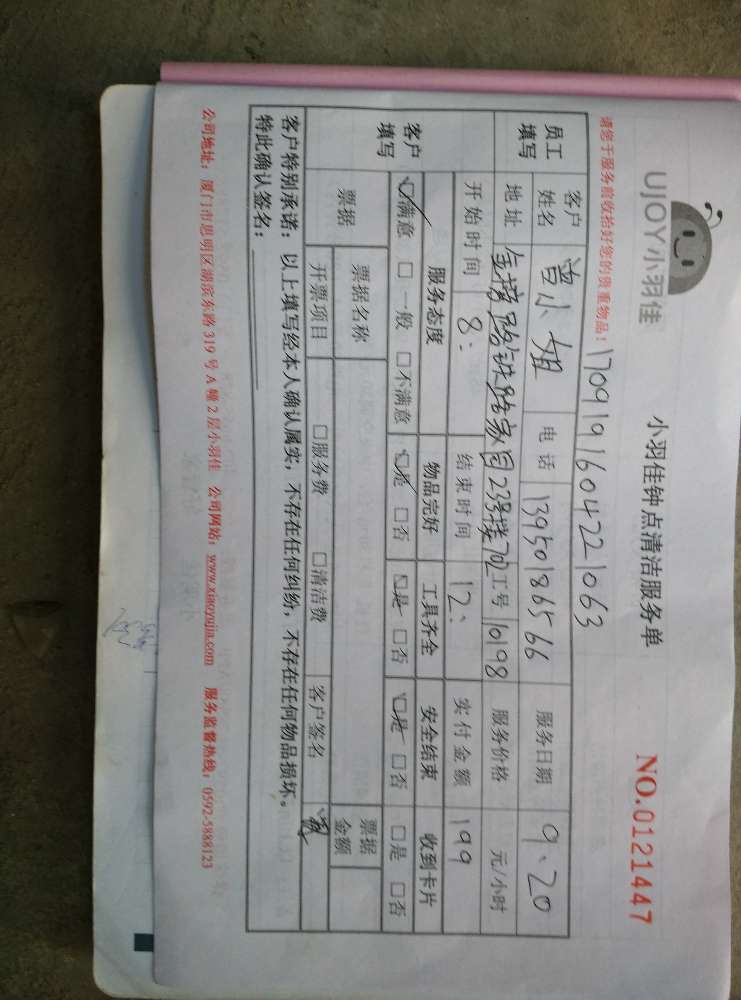 UJOY小羽佳
小羽佳钟点清洁服务单
NO.0121447
请您于服务前收拾好您的贵重物品！ 1709191604221063
员工填写 客户姓名 曾小姐 电话 13950186566 服务日期 9.20
地址 金榜路铁路家园23号楼702 工号 10198 服务价格 元/小时
开始时间 8: 结束时间 12: 实付金额 199
客户填写 服务态度 物品完好 工具齐全 安全结束 收到卡片
☑满意 □一般 □不满意 ☑是 □否 ☑是 □否 ☑是 □否 □是 □否
票据 票据名称 票据金额
开票项目 □服务费 □清洁费 客户签名
客户特别承诺：以上填写经本人确认属实，不存在任何纠纷，不存在任何物品损坏。
特此确认签名：
公司地址：厦门市思明区湖滨东路319号A幢2层小羽佳 公司网站：www.xiaoyujia.com 服务监督热线：0592-5888123